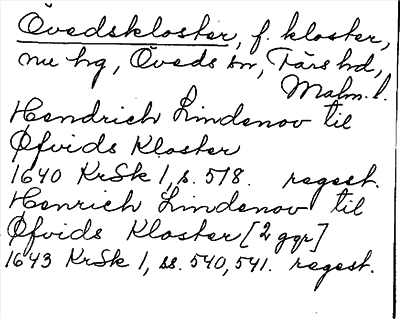 Övedskloster, f. kloster,
nu hg, Öveds sn, Färs hd,
Malm. l.
Hendrich Lindenov til
Øfvids Kloster
1640 KrSk 1, s. 578. regest.
Henrich Lindenov til
Øfvids Kloster [2 ggr]
1643 KrSk 1, ss. 540, 541. regest.